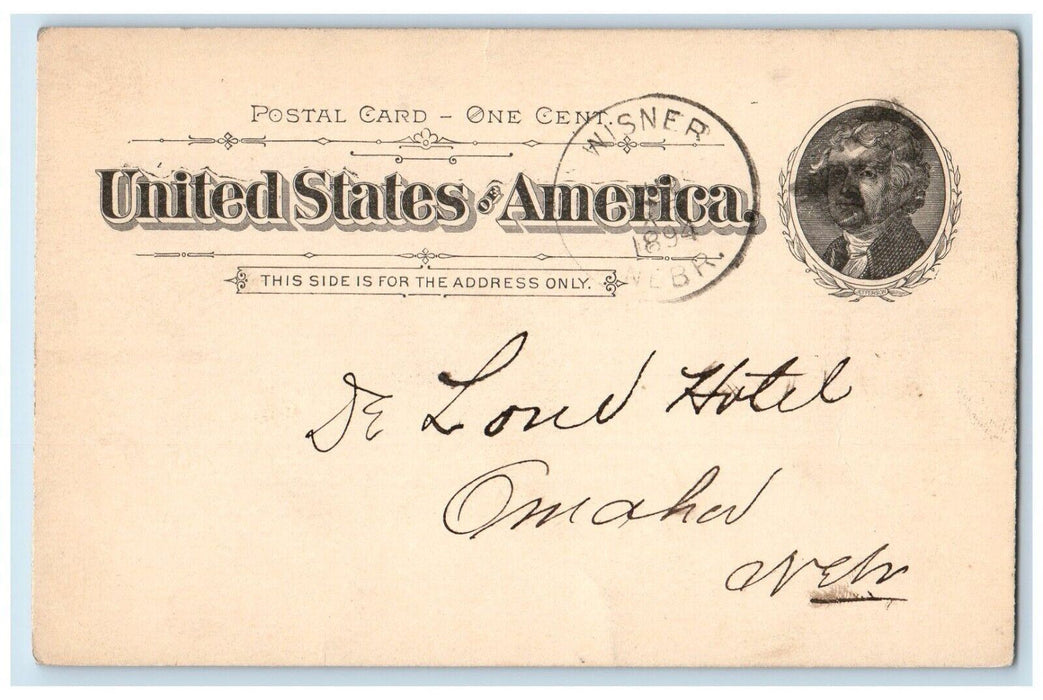 POSTAL CARD – ONE CENT.
United States OF America.
THIS SIDE IS FOR THE ADDRESS ONLY.
WISNER
1894
NEBR.
JEFFERSON
De Lond Hotel
Omaha
Neb